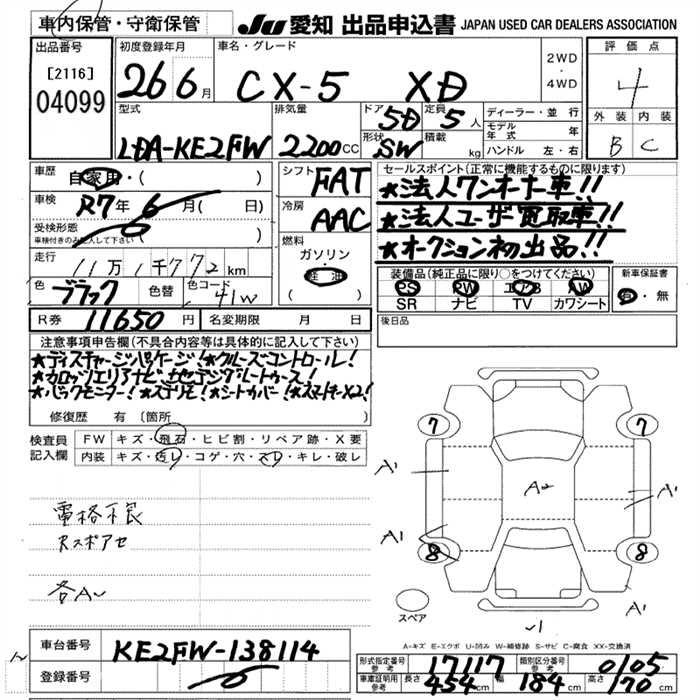 車内保管・守衛保管
JU 愛知 出品申込書 JAPAN USED CAR DEALERS ASSOCIATION
出品番号
[2116]
04099
初度登録年月
26 6月
車名・グレード
CX-5 XD
2WD
・
4WD
評価点
4
外装 内装
B C
型式
LDA-KE2FW
排気量
2200CC
ドア
5D
定員
5人
形状
SW
積載
kg
ディーラー・並行
モデル年式 年
ハンドル 左・右
車歴
自家用・( )
車検
R7年 6月( 日)
受検形態
車検付きのみ記入して下さい ( )
走行
11万1千772km
色
ブラック
色替
色コード
41W
シフト
FAT
冷房
AAC
燃料
ガソリン
・
軽油
( )
セールスポイント(正常に機能するものに限ります)
★法人ワンオーナー車!!
★法人ユーザー買取車!!
★オークション初出品!!
装備品(純正品に限り○をつけてください)
PS PW エアB AW
SR ナビ TV カワシート
新車保証書
有・無
R券 11650円
名変期限 月 日
後日品
注意事項申告欄(不具合内容等は具体的に記入して下さい)
★ディスチャージパッケージ!★クルーズコントロール!
★カロッツェリアナビ!地デジ!
★バックモニター!★スマキ×2!
修復歴 有 〔箇所
検査員
記入欄
FW キズ・飛石・ヒビ割・リペア跡・X要
内装 キズ・汚レ・コゲ・穴・スレ・キレ・破レ
電格不良
Rスポアセ
各A〜
7 7
A1 A2 A1
A1
8 8
A1
スペア
√1
A-キズ E-エクボ U-凹み W-補修跡 S-サビ C-腐食 XX-交換済
車台番号 KE2FW-138114
登録番号
形式指定番号
参考
17117
類別区分番号
参考
0105
車庫証明用
参考
長さ 454cm 幅 184cm 高さ 170cm